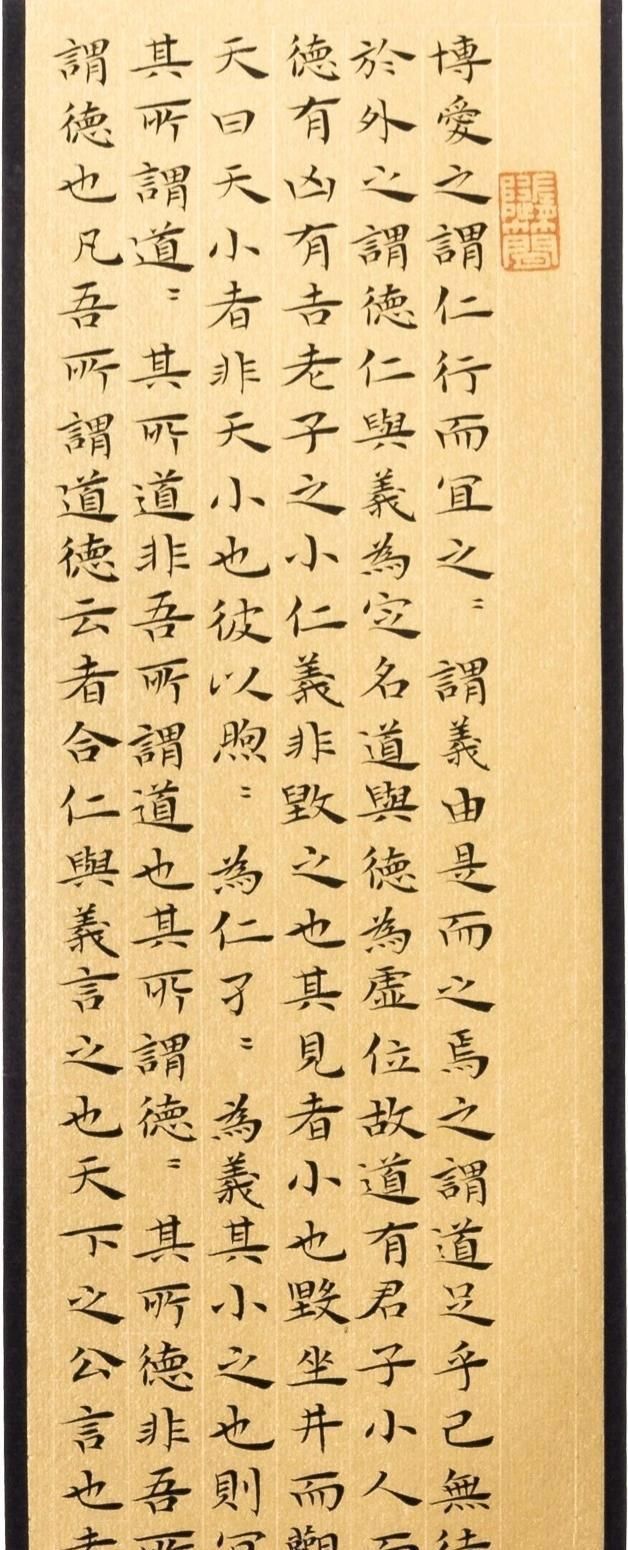 博愛之謂仁行而冝之〻謂義由是而之焉之謂道足乎己無待
於外之謂徳仁與義為定名道與徳為虛位故道有君子小人而
徳有凶有吉老子之小仁義非毀之也其見者小也毀坐井而觀
天曰天小者非天小也彼以煦〻為仁孑〻為義其小之也則冝
其所謂道〻其所道非吾所謂道也其所謂徳〻其所徳非吾所
謂徳也凡吾所謂道徳云者合仁與義言之也天下之公言也老